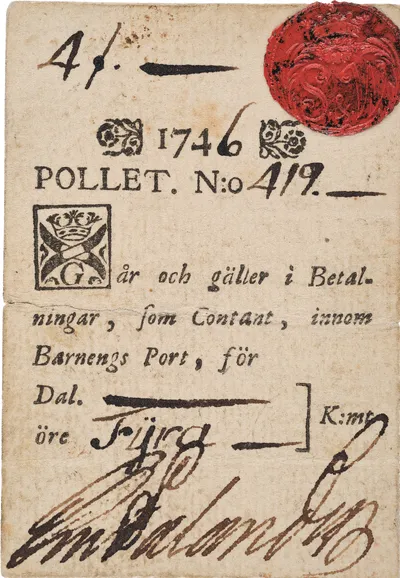 4 /. —
1746
POLLET. N:o 419. —
Går och gäller i Betal-
ningar, som Contant, innom
Barnengs Port, för
Dal. — ] K:mt
öre Fyra —